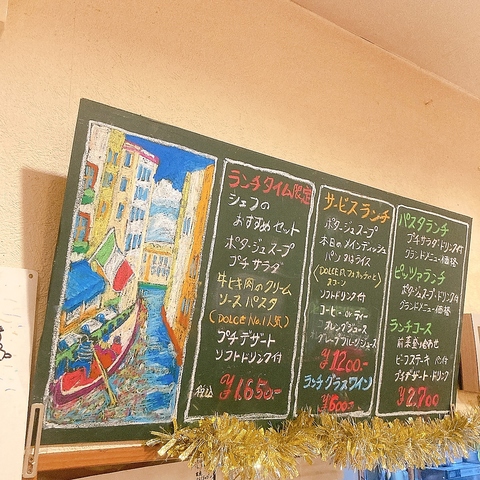 ランチタイム限定
シェフの
おすすめセット
ポタージュスープ
プチサラダ
牛ヒキ肉のクリーム
ソースパスタ
(DOLCE No.1人気)
プチデザート
ソフトドリンク付
税込 ¥1,650-
サービスランチ
ポタージュスープ
本日のメインディッシュ
パン又はライス
スコーン
ソフトドリンク付
コーヒー or ティー
オレンジジュース
グレープフルーツジュース
¥1200-
ランチグラスワイン
¥600-
パスタランチ
プチサラダ・ドリンク付
グランドメニュー価格
ピッツァランチ
ポタージュスープ・ドリンク付
グランドメニュー価格
ランチコース
前菜盛り合わせ
ビーフステーキ パン付
プチデザート・ドリンク
¥2,700